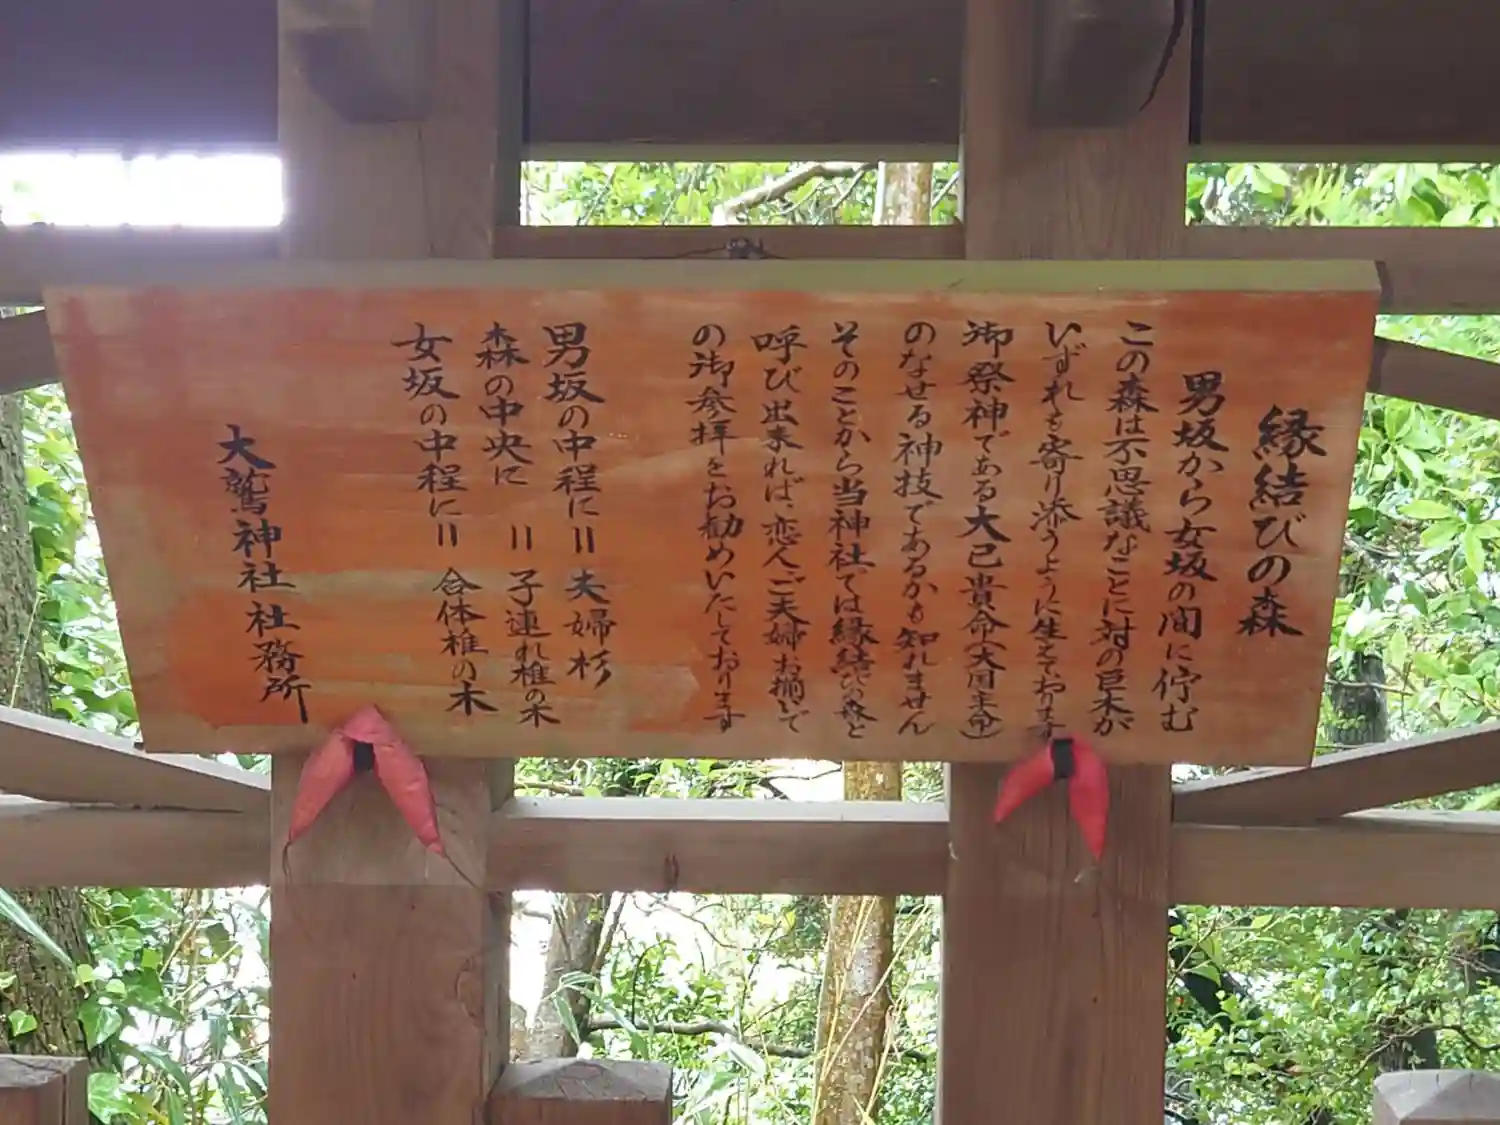 縁結びの森
男坂から女坂の間に佇む
この森は不思議なことに対の巨木が
いずれも寄り添うように生えております
御祭神である大己貴命(大国主命)
のなせる神技であるかも知れません
そのことから当神社では縁結びの森と
呼び出来れば、恋人ご夫婦お揃いで
の御参拝をお勧めいたしております
男坂の中程に＝夫婦杉
森の中央に＝子連れ椎の木
女坂の中程に＝合体椎の木
大鷲神社社務所